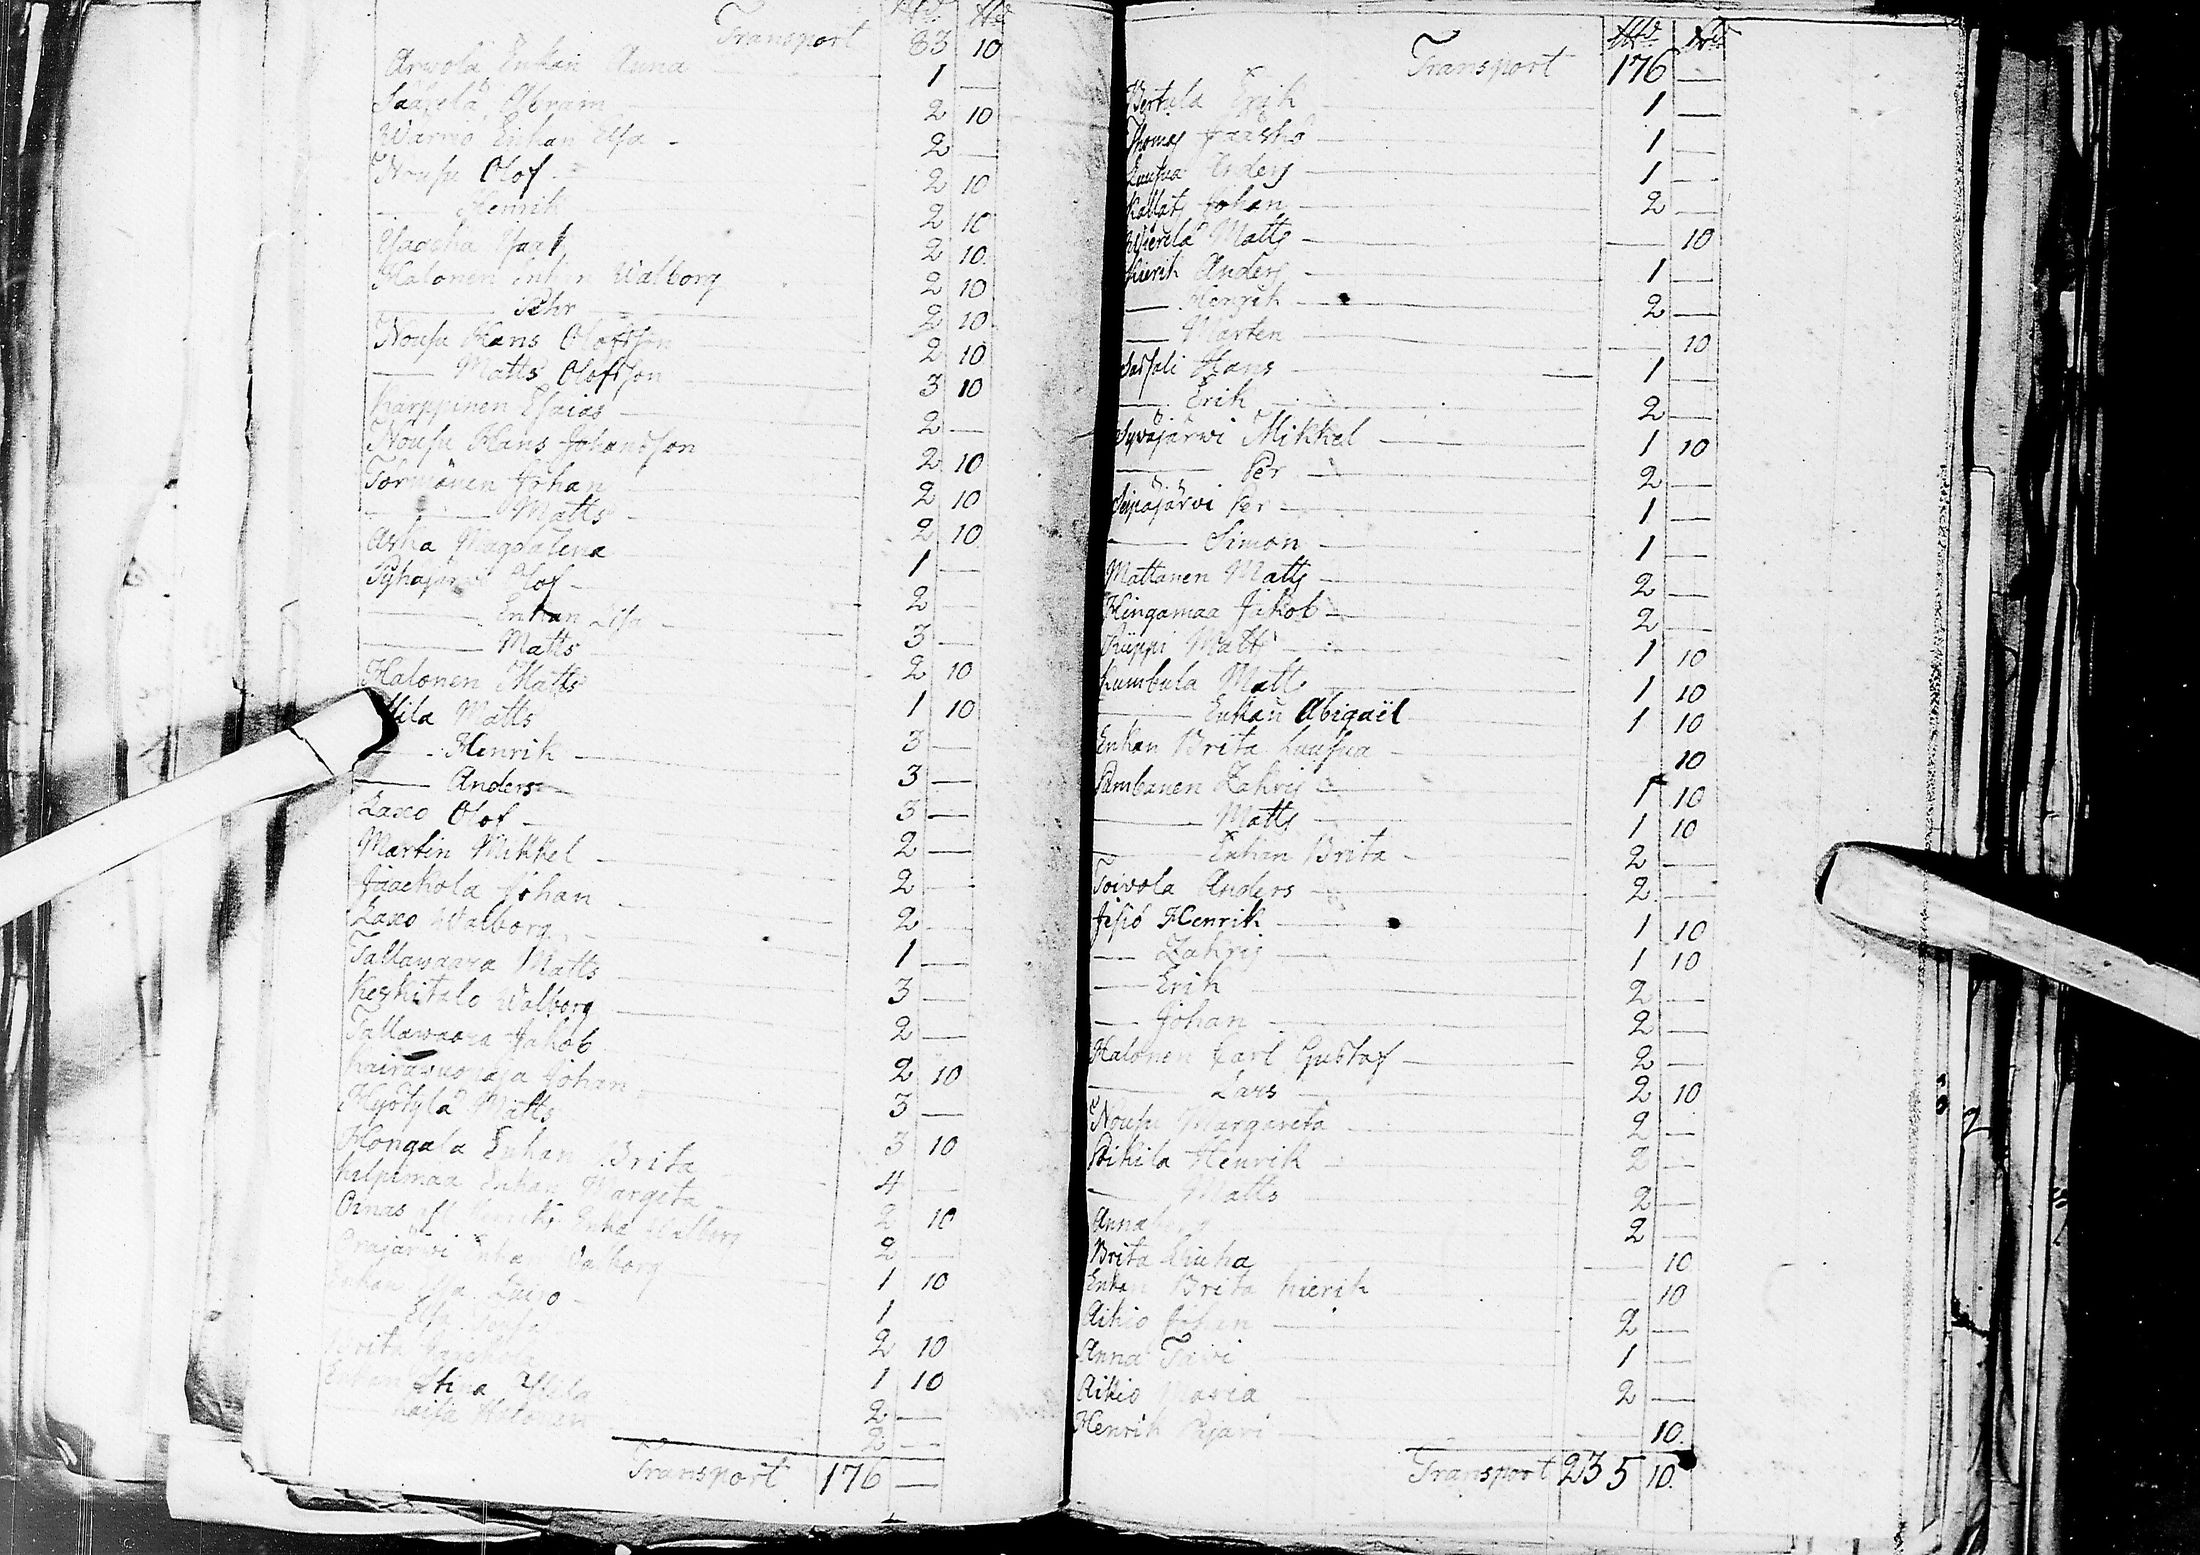 Transport 83 10
Arwola Enkan Anna 1 —
Sääselä Abram 2 10
Warrio Enkan Elsa 2 —
Nousu Olof 2 10
— Henrik 2 10
2 10
Halonen Enkan Walborg 2 10
— Pehr 2 10
Nousu Hans Olofsson 2 10
— Matts Olofsson 3 10
Karppinen Esaias 2 —
Nousu Hans Johansson 2 10
Tormänen Johan 2 10
— Matts 2 10
Aska Magdalena 1 —
Pyhäjärvi Olof 2 —
— Enkan Lisa 3 —
— Matts 2 10
Halonen Matts 1 10
Matts 3 —
— Henrik 3 —
— Anders 3 —
Laxo Olof 2 —
Martin Mikkel 2 —
Jaackola Johan 2 —
Laxo Walborg 1 —
Tallawaara Matts 3 —
Keskitalo Walborg 2 —
Tallawaara Jakob 2 10
Kairasuonoja Johan 3 —
Hyötylä Matts 3 10
Hongala Enkan Brita 4 —
Kilpimaa Enkan Margeta 2 10
Oinas Enka Walborg 2 —
Orajärwi Enkan Walborg 1 10
Enkan Elsa Laxo 1 —
Elsa 2 10
Brita 1 10
Enkan Stina 2 —
Kaisa Halonen 2 —
Transport 176 —
Transport 176 —
Bertula Erik 1 —
Thomas 1 —
Luusua Anders 1 —
Johan 2 —
Matts — 10
Kierik Anders 1 —
— Henrik 2 —
— Mårten — 10
Sassali Hans 1 —
— Erik 2 —
Syväjärwi Mikkel 1 10
— Per 2 —
Seipäjärvi Per 1 —
— Simon 1 —
Mattanen Matts 2 —
Hingamaa Jakob 2 —
Rüppi Matts 1 10
Kumbula Matts 1 10
— Enkan Abigaël 1 10
Enkan Brita Luusua 10
Pambanen Zakris 1 10
— Matts 1 10
— Enkan Brita 2 —
Toivola Anders 2 —
Jesiö Henrik 1 10
— Zakris 1 10
— Erik 2 —
— Johan 2 —
Halonen Carl Gustaf 2 —
— Lars 2 10
Nousu Margareta 2 —
Pikila Henrik 2 —
— Matts 2 —
Annaberg 2 —
Brita Liuha — 10
Enkan Brita Kierik 10
Aikio Johan 2 —
Anna Tawi 1 —
Aikio Maria 2 —
Henrik Pajari — 10
Transport 235 10